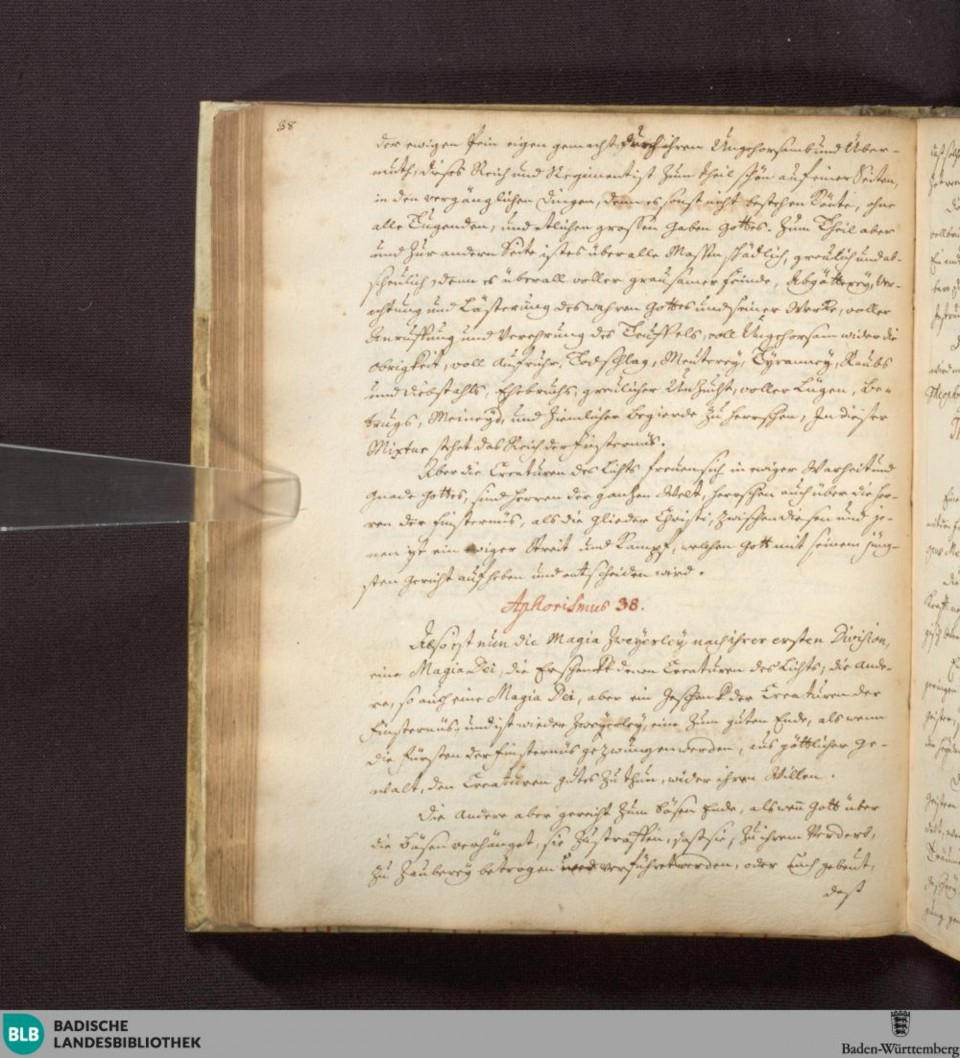 38
der ewigen Pein eigen gemacht, durch ihren Ungehorsamb und Über-
muth, dieses Reich und Regiment ist zum theil schön auf einer Seiten,
in den vergänglichen Dingen, denn es sonst nicht bestehen könte, ohne
alle Tugenden, und etlichen grossen Gaben Gottes. Zum Theil aber
und zur andern Seite ist es über alle Massen schädlich, greulich und ab-
scheulich, denn es überall voller grausamer Feinde, Abgötterey, Ver-
achtung und Lästerung des wahren Gottes und seiner Werke, voller
Anruffung und Verehrung des Teuffels, voll Ungehorsam wider die
Obrigkeit, voll Aufruhr, Todschlag, Meuterey, Tyranney, Raubs
und Diebstahls, Ehebruchs, greulicher Unzucht, voller Lügen, Be-
trugs, Meineyd, und ziemlicher Begierde zu herrschen, In dieser
Mixtur stehet das Reich der Finsternis.
Aber die Creaturen des Lichts freuen sich in ewiger Warheit und
Gnade Gottes, sind Herren der ganzen Welt, herrschen auch über die Her-
ren der Finsternüs, als die Glieder Christi, zwischen diesen und je-
nen ist ein ewiger Streit und Kampf, welchen Gott mit seinem jüng-
sten Gericht aufheben und entscheiden wird.
Aphorismus 38.
Also ist nun die Magia zweyerley nach ihrer ersten Division,
eine Magia Dei, die Er schenkt denen Creaturen des Lichts; die Ande-
re, so auch eine Magia Dei, aber ein Geschenk der Creaturen der
Finsternüs, und ist wieder zweyerley, eine zum guten Ende, als wenn
die Fürsten der Finsternüs gezwungen werden, aus göttlicher Ge-
walt, den Creaturen gutes zu thun, wider ihren Willen.
Die Andere aber gereicht zum bösen Ende, als wenn Gott über
die Bösen verhänget, sie zu straffen, dass sie, zu ihrem Verderb,
zu Zauberey betrogen verführet werden, oder Euch gebeut,
dass
BLB
BADISCHE
LANDESBIBLIOTHEK
Baden-Württemberg